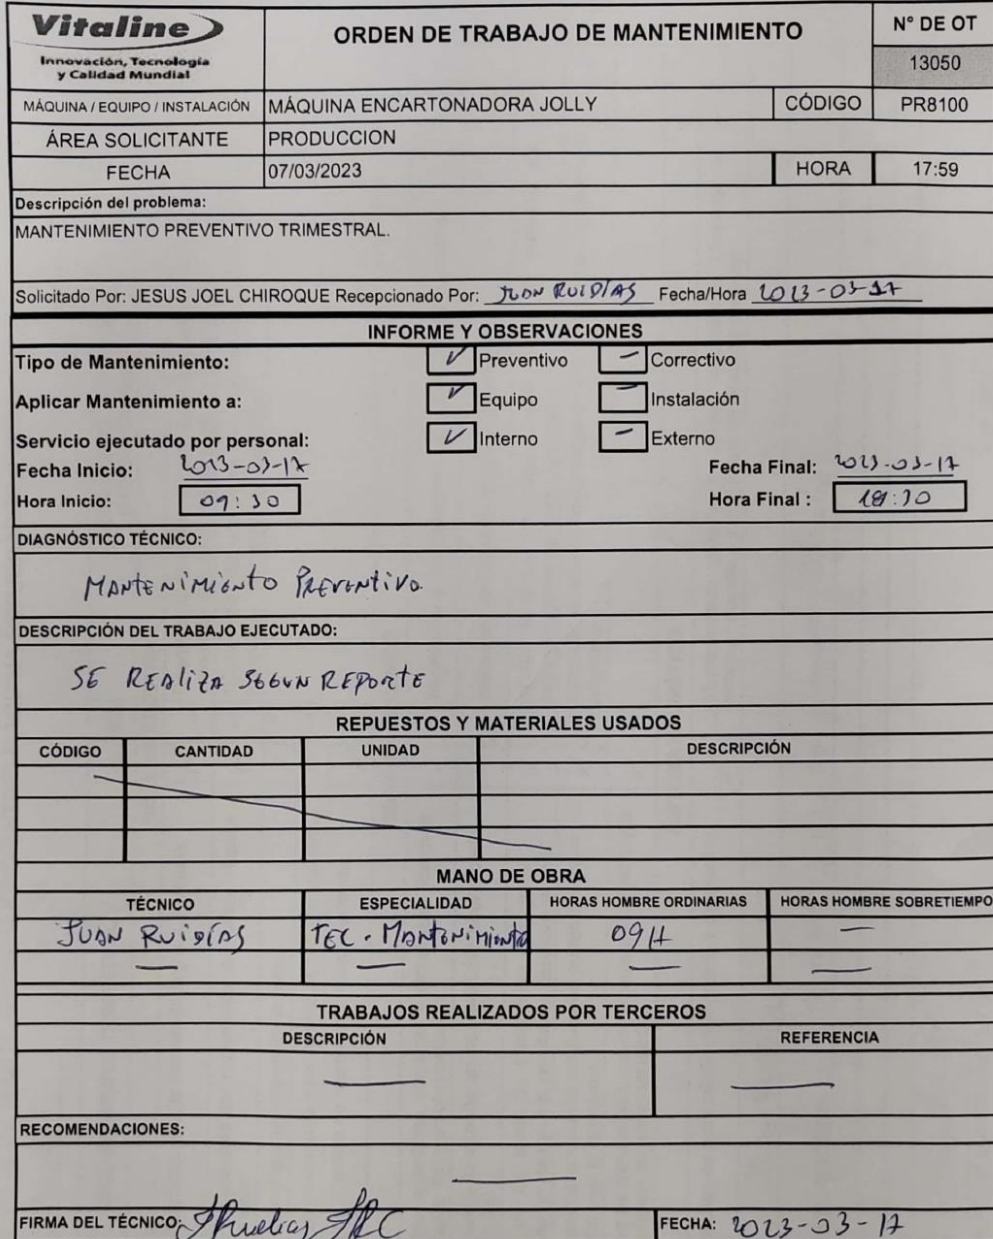 Vitaline
Innovación, Tecnología
y Calidad Mundial
ORDEN DE TRABAJO DE MANTENIMIENTO
N° DE OT
13050
MÁQUINA / EQUIPO / INSTALACIÓN MÁQUINA ENCARTONADORA JOLLY CÓDIGO PR8100
ÁREA SOLICITANTE PRODUCCION
FECHA 07/03/2023 HORA 17:59
Descripción del problema:
MANTENIMIENTO PREVENTIVO TRIMESTRAL.
Solicitado Por: JESUS JOEL CHIROQUE Recepcionado Por: JUAN RUIDÍAS Fecha/Hora 2023-03-17
INFORME Y OBSERVACIONES
Tipo de Mantenimiento: Preventivo Correctivo
Aplicar Mantenimiento a: Equipo Instalación
Servicio ejecutado por personal: Interno Externo
Fecha Inicio: 2023-03-17 Fecha Final: 2023-03-17
Hora Inicio: 09:30 Hora Final : 18:30
DIAGNÓSTICO TÉCNICO:
MANTENIMIENTO PREVENTIVO
DESCRIPCIÓN DEL TRABAJO EJECUTADO:
SE REALIZA SEGUN REPORTE
REPUESTOS Y MATERIALES USADOS
CÓDIGO CANTIDAD UNIDAD DESCRIPCIÓN
MANO DE OBRA
TÉCNICO ESPECIALIDAD HORAS HOMBRE ORDINARIAS HORAS HOMBRE SOBRETIEMPO
JUAN RUIDÍAS TEC. MANTENIMIENTO 09H —
— — — —
TRABAJOS REALIZADOS POR TERCEROS
DESCRIPCIÓN REFERENCIA
— —
RECOMENDACIONES:
—
FIRMA DEL TÉCNICO: FECHA: 2023-03-17